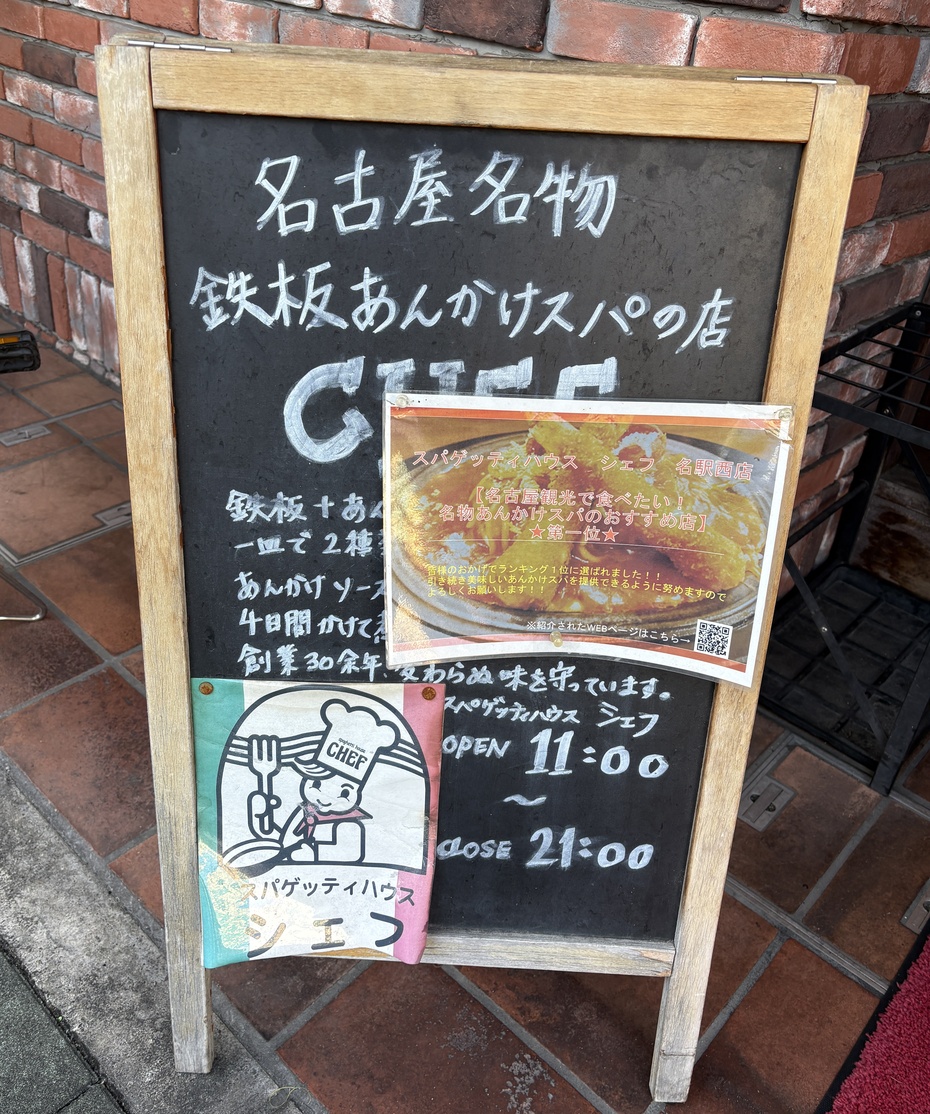 名古屋名物
鉄板あんかけスパの店
CHEF
鉄板+あん
一皿で2種
あんかけソース
4日間かけて
創業30余年、変わらぬ味を守っています。
スパゲッティハウス シェフ
OPEN 11:00
〜
CLOSE 21:00
スパゲッティハウス シェフ 名駅西店
【名古屋観光で食べたい!
名物あんかけスパのおすすめ店】
★第一位★
皆様のおかげでランキング1位に選ばれました!!
引き続き美味しいあんかけスパを提供できるように努めますので
よろしくお願いします!!
※紹介されたWEBページはこちら→
spaghetti house
CHEF
スパゲッティハウス
シェフ